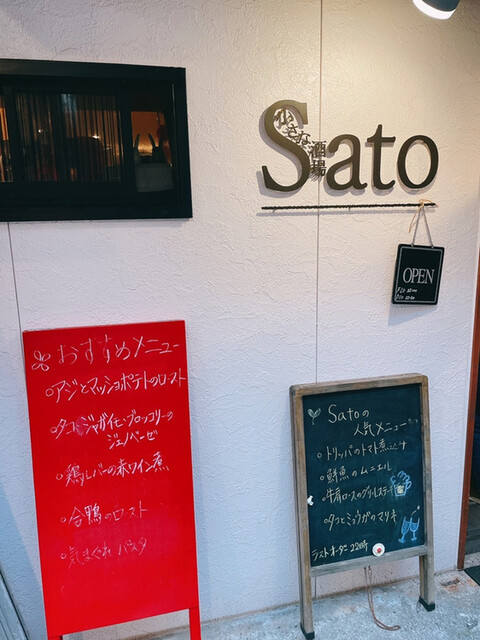 小さな酒場
Sato
OPEN
おすすめメニュー
○アジとマッシュポテトのロースト
○タコとジャガイモ・ブロッコリーの
ジェノベーゼ
○鶏レバーの赤ワイン煮
○合鴨のロースト
○気まぐれパスタ
Satoの
人気メニュー
○トリッパのトマト煮込み
○鮮魚のムニエル
○牛肩ロースのグリルステーキ
○タコとミョウガのマリネ
ラストオーダー 22時